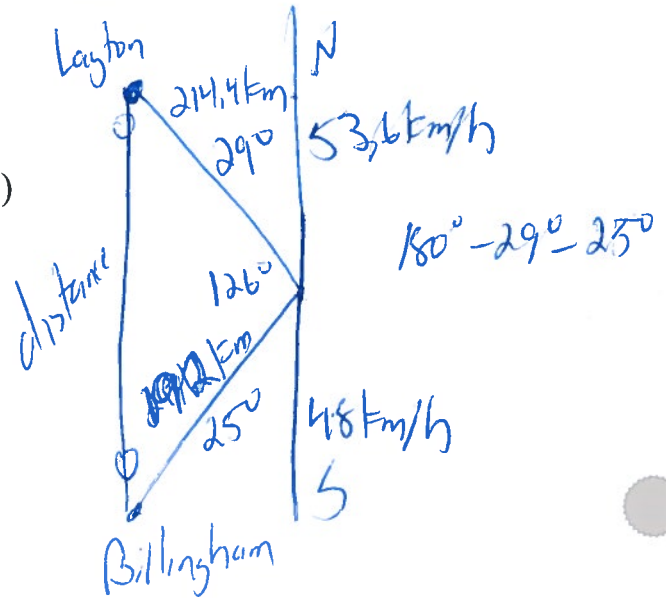 Layton
N
214,4km
29°
53,6km/h
)
180° - 29° - 25°
126°
distance
km
25°
48km/h
S
Billingham